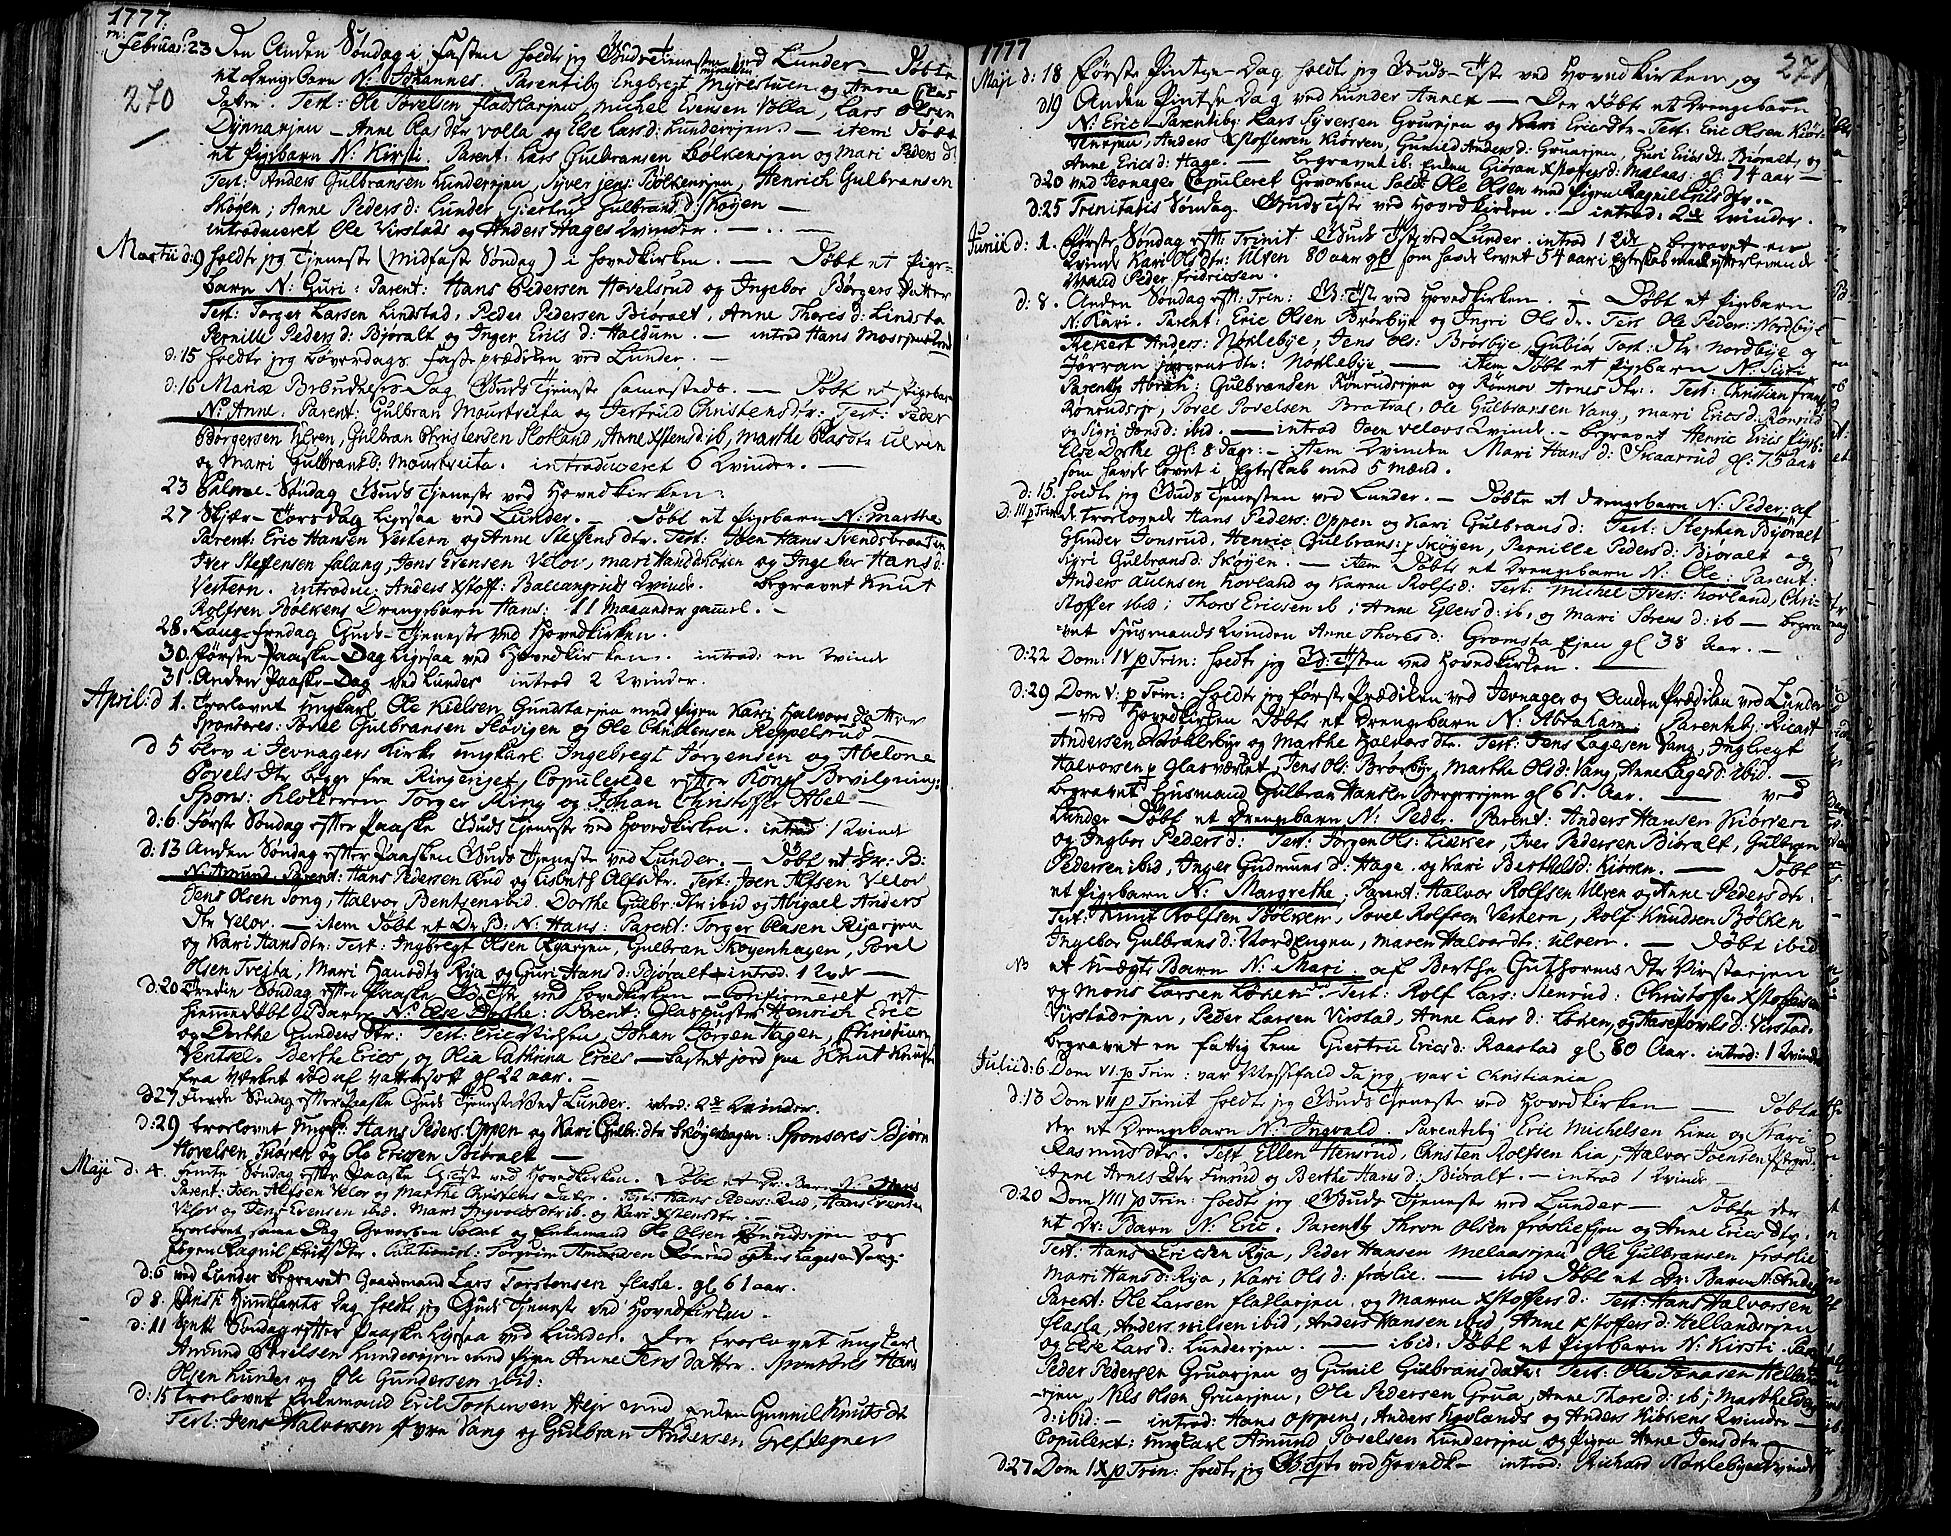 1777.
Februar: 23 Den Anden Søndag i Fasten holdt jeg Guds Tjenesten ved Lunder — Døbte
270
et Drengebarn N: Johannes. Parentib: Engbregt Myrestuen og Anne Clas
Datter. Test: Ole Povelsen fladslarjen, Michel Evensen Volla, Lars Olsen
Dynnarjen — Anne Clas dtr Volla og Else Lars d: Lundersjen. — item Døbt
et Pigebarn N: Kirsti. Parent: Lars Gulbransen Bølkensjen og Mari Peders d:
Test: Anders Gulbransen Lundersjen, Syver Jens: Bølkensjen, Henrich Gulbransen
Skøyen; Anne Peders d: Lunder Giertrud Gulbrans d: Skøyen —
introduceret Ole Virstads og Anders Hages Qvinder. —
Martii d: 9 holdt jeg Tjeneste (Midfaste Søndag) i Hovedkirken. — Døbt et Pige-
barn N: Guri: Parent: Hans Pedersen Hovelsrud og Ingebor Børgers Datter
Test: Torger Larsen Lindstad, Peder Pedersen Biøralt, Anne Thores d: Lindsta
Pernille Peders d: Bjøralt og Inger Erics d: Haldum. — introd Hans
d: 15 holdt jeg Løverdags Faste prædiken ved Lunder. —
d: 16 Mariæ Bebudelses-Dag Guds Tjeneste samesteds. — Døbt et Pigebarn
N: Anne. Parent: Gulbran Mourtveita og Jertrud Christensdtr: Test: Peder
Børgersen Ulven, Gulbran Christensen Slotland, Anne Xstens d: ib, Marthe Clasdtr Ulven
og Mari Gulbrans d: Mourtveita. introduceret 6 Qvinder. —
23 Palme-Søndag Guds Tjeneste ved Hovedkirken.
27 Skjær-Torsdag Ligesaa ved Lunder. — Døbt et Pigebarn N: Marthe
Parent: Eric Hansen Vestern og Anne Steffens dtr. Test: Joen Hans: Svendsbraaten
Iver Steffensen Falang, Jens Evensen Velov, Mari og Ingebor Hans d:
Vestern. introdu: Anders Xstoff: Ballangruds Qvinde. Begravet Knut
Rolfsen Bølkens Drengebarn Hans: 11 Maaander gamel. —
28. Lang-fredag Guds-Tjeneste ved Hovedkirken.
30 Første Paaske Dag Ligesaa ved Hovedkirken. introd: en Qvinde
31 Anden Paaske-Dag ved Lunder introd 2 Qvinder.
April: d 1. Trolovet Ungkarl Ole Kielsen Gundstarjen med Pigen Kari Halvors Datter
Sponsores: Povel Gulbransen Fløvigen og Ole Christensen Keppelsrud —
d 5 blev i Jevnager Kirke ungkarl Ingebregt Jørgensen og Abelone
Povels Dtr begge fra Ringeriget, Copulerede efter Kongl Bevilgning:
Spons: Klokkeren Torger Ring og Johan Christoffer Abel —
d: 6. Første Søndag efter Paaske Guds Tjeneste ved Hovedkirken. introd 1 Qvinde
d: 13 Anden Søndag efter Paasken Guds Tjeneste ved Lunder. — Døbt et Dr: B:
N: Amund. Parent: Hans Pedersen Rud og Lisbeth Alfsdtr. Test: Joen Alfsen Velov
Jens Olsen Tong, Halvor Bentsen ibid. Dorthe Gulbr: dtr ibid og Abigael Anders
dtr Velov. — item Døbt et Dr: B: N: Hans: Parent: Torger Clasen Ryarjen
og Kari Hans dtr: Test: Ingbregt Olsen Ryarjen, Gulbran Skøyenhagen, Povel
Olsen Tveita, Mari Hansdtr Rya og Guri Hans d: Bjøralt. introd. 1 Qvde —
d: 20 Tredie Søndag efter Paaske G: Tjste ved Hovedkirken — Confirmeret et
hiemmedøbt Barn N: Else Dorthe: Parent: Glaspuster Henrich Eric
og Dorthe Gunders dtr: Test: Eric Nielsen, Johan Jørgen Hagen, Christian
Ventsel. Berthe Erics, og Olia Cathrina Erics. — Kastet jord paa Knut Knutsen
fra Værket død af Vattersott gl 22 aar. —
d 27 Fierde Søndag efter Paaske Guds Tjeneste Ved Lunder. introd: 2de Qvinder.
d: 29 Trorlovet Ungk: Hans Peders: Oppen og Kari Gulbr: dtr Skøyenhagen: Sponsores Bjørn
Hovelsen Kiørven og Ole Ericsen Biøralt —
Maji d: 4. Femte Søndag efter Paaske G: Tjst ved Hovedkirken. Døbt et Dr: Barn N: Hans
Parent: Joen Alfsen Velov og Marthe Christens Datr. Test: Hans Peders: Rud, Hans Evensen
Velov og Jens Evensen ibid. Mari Ingvolds dtr ib. og Kari Xstens dtr.
Trorlovet samme Dag Gevorben Soldat og Enkemand Ole Olsen Rønrudsjen og
Pigen Ragnil Erics Dtr. Cautionist: Torgrim Amundsen Rønrud og Jens Lagesen Vang.
d: 6 ved Lunder Begravet Gaardmand Lars Torstensen flasla. gl 61 aar.
d 8. Christi Himmelfarts Dag holdt jeg Guds Tjeneste ved Hovedkirken.
d: 11 Siette Søndag efter Paaske Ligesaa ved Lunder. Der trorlovet ungkarl
Amund Povelsen Lundersjen med Pigen Anne Jens Datter. Sponsores Hans
Olsen Lunder og Ole Gundersen ibid:
d: 15 trorlovet Enkemand Eric Torstensen Hejer med enken Gunnil Knuts dt
Test: Jens Halvorsen Vang og Gulbran Andersen Grefsegner
1777
271
Maji d: 18 Første Pintze-Dag holdt jeg Guds-Tjste ved Hovedkirken, og
d 19 Anden Pintse Dag ved Lunder Annex — Der døbt et Drengebarn
N: Eric Parentib: Lars Syversen Gruarjen og Kari Ericsdtr — Test: Eric Olsen Kiør-
vensjen, Anders Xstoffersen Kiørven, Gunild Anders d: Gruarjen, Guri Erics dtr Biøralt og
Anne Erics d: Hage. — Begravet ib: Enken Gioran Xstoffers d: Melaas: gl: 74 aar —
d: 20 ved Jevnager Copuleret Gevorben Soldt Ole Olsen med Pigen Ragnil Erics dtr.
d: 25 Trinitatis Søndag Guds Tjste ved Hovedkirken. — introd: 2de Qvinder.
Junii d: 1. Første Søndag eft: Trinit: Guds Tjst ved Lunder. introd 1 Qde begravet en
Qvinde Kari Ols dtr: Ulven 80 aar gl som havde levet 54 aar i Egteskab med efterlevende
Mand Peder Fridricsen.
d: 8. Anden Søndag eft: Trin: G: Tjst ved Hovedkirken. — Døbt et Pigebarn
N: Kari. Parent: Eric Olsen Brørbye og Ingri Ols dr. Test Ole Peders: Nordbye
Anders: Nøklebye, Jens Ols: Brørbye, Gubiør Tost: dtr Nordbye og
Jørran Jørgensdtr: Nøklebye — item Døbt et Pigebarn N: Sigri
Parentib Abrah: Gulbransen Rønrudsejen og Rønnov Arnes dtr. Test: Christian
Rønrudsejr, Povel Povelsen Bratval, Ole Gulbransen Vang, Mari Erics d: Rønrud
og Sigri Jons d: ibid. — introd Joen Velovs Qvinde. — begravet Henric Erics Pigeb:
Else Dorthe gl: 8 Dage. — item Qvinden Mari Hans d: Skaarrud gl: 75 aar
som havde levet i Egteskab med 5 Mænd.
d: 15. holdt jeg Guds Tjenesten ved Lunder. — Døbte et Drengebarn N: Peder: af
D: III p Trin de trorlovede Hans Peders: Oppen og Kari Gulbrans d: Test: Stephen Bjøralt
Glunder Jonsrud, Henric Gulbrans: Skøyen, Pernille Peders d: Bjøralt og
Sigri Gulbrans d: Skøyen. — item Døbt et Drengebarn N: Ole: Parent:
Anders Auensen Kovland og Karen Rolfs d: Test: Michel Ivers: Kovland, Chri-
stoffer ibid; Thore Ericsen ib; Anne Eylers d: ib, og Mari Sørens d: ib — begra-
vet Husmands Qvinden Anne Thores d: Gramsta Ejen gl 38 Aar. —
d: 22 Dom: IV p Trin: holdt jeg G: Tjsten ved Hovedkirken. —
d: 29 Dom V: p Trin: holdt jeg første Prædiken ved Jevnager og Anden Prædiken ved Lunder
— ved Hovedkirken Døbt et Drengebarn N: Abraham: Parentib: Ricart
Andersen Nøklebye og Marthe Halvors dtr. Test: Jens Lagesen Vang, Ingbregt
Halvorsen p Glasværket, Jens Ols: Brørbye, Marthe Ols d: Vang, Anne Lages d: ibid. —
begravet Husmand Gulbran Hansen Bergersjen gl 65 Aar. — ved
Lunder Døbt et Drengebarn N: Peder. Parent: Anders Hansen Kiørven
og Ingbor Peders d: Test: Jørgen Ols: Løken, Iver Pedersen Biøralt, Gulbran
Pedersen ibid, Inger Gudmuns d: Hage, og Kari Berthels d: Kiørven. — Døbt
et Pigebarn N: Margrethe, Parent: Halvor Rolfsen Ulven og Anne Peders dtr.
Test: Knut Rolfsen Bølken, Povel Rolfsen Vestern, Rolf Knudsen Bølken
Ingebor Gulbrans d: Nordengen, Maren Halvordtr: Ulven. — Døbt ibid
NB et Uægte Barn N: Mari af Berthe Guthorms dtr Virstarjen
og Mons Larsen Løken. Test: Rolf Lars: Stenrud: Christoffer Xstoffersen
Virstadejen, Peder Larsen Virstad, Anne Lars d: Løken, og Aase Povels d: Virstad.
begravet en fattig Lem Giertru Erics d: Raastad gl. 80 Aar. introd: 1 Qvinde
Julii d: 6 Dom VI. p Trin: var Messefald da jeg var i Christiania
d: 13 Dom VII p Trinit holdt jeg Guds Tjeneste ved Hovedkirken — Døbte
der et Drengebarn N: Ingvald. Parentib: Eric Michelsen Lien og Kari
Rasmusdtr. Test Ellen Hensrud, Christen Rolfsen Lia, Halvor Joensen
Anne Arnes dtr Finsrud og Berthe Hans d: Biøralt. — introd 1 Qvinde
d: 20 Dom VIII p Trin: holdt jeg Guds Tjeneste ved Lunder — Døbte der
et Dr: Barn N: Eric. Parentib Thron Olsen Frøslie Ejen og Anne Erics dtr.
Test: Hans Ericsen Rya, Peder Hansen Melaasejen, Ole Gulbransen Frøslie
Mari Hans d: Rya, Kari Ols d: Frøslie. — ibid Døbt et Dr: Barn N: Anders
Parent: Ole Larsen flaslarjen, og Maren Xstoffers d: Test: Hans Halvorsen
flasla, Anders Nilsen ibid, Anders Hansen ibid, Anne Xstoffers d: Hellandsejen
og Else Lars d: Lundersjen. — ibid: Døbt et Pigebarn N: Kirsti. Parent:
Peder Pedersen Gruarjen og Gunil Gulbransdatr: Test: Ole Jonasen
-ejen, Nils Olsen Gruarjen, Ole Pedersen Grua, Anne Thores d: ib; Marthe
d: ibid: — introd: Hans Oppens, Anders Kovlands og Anders Kiørvens Qvinder —
Copuleret: ungkarl Amund Povelsen Lundersjen og Pigen Anne Jens dtr —
d: 27 Dom IX p Trin: holdt jeg G: Tjste ved Hovedk — introd: Richard Nøklebyes Qvinde